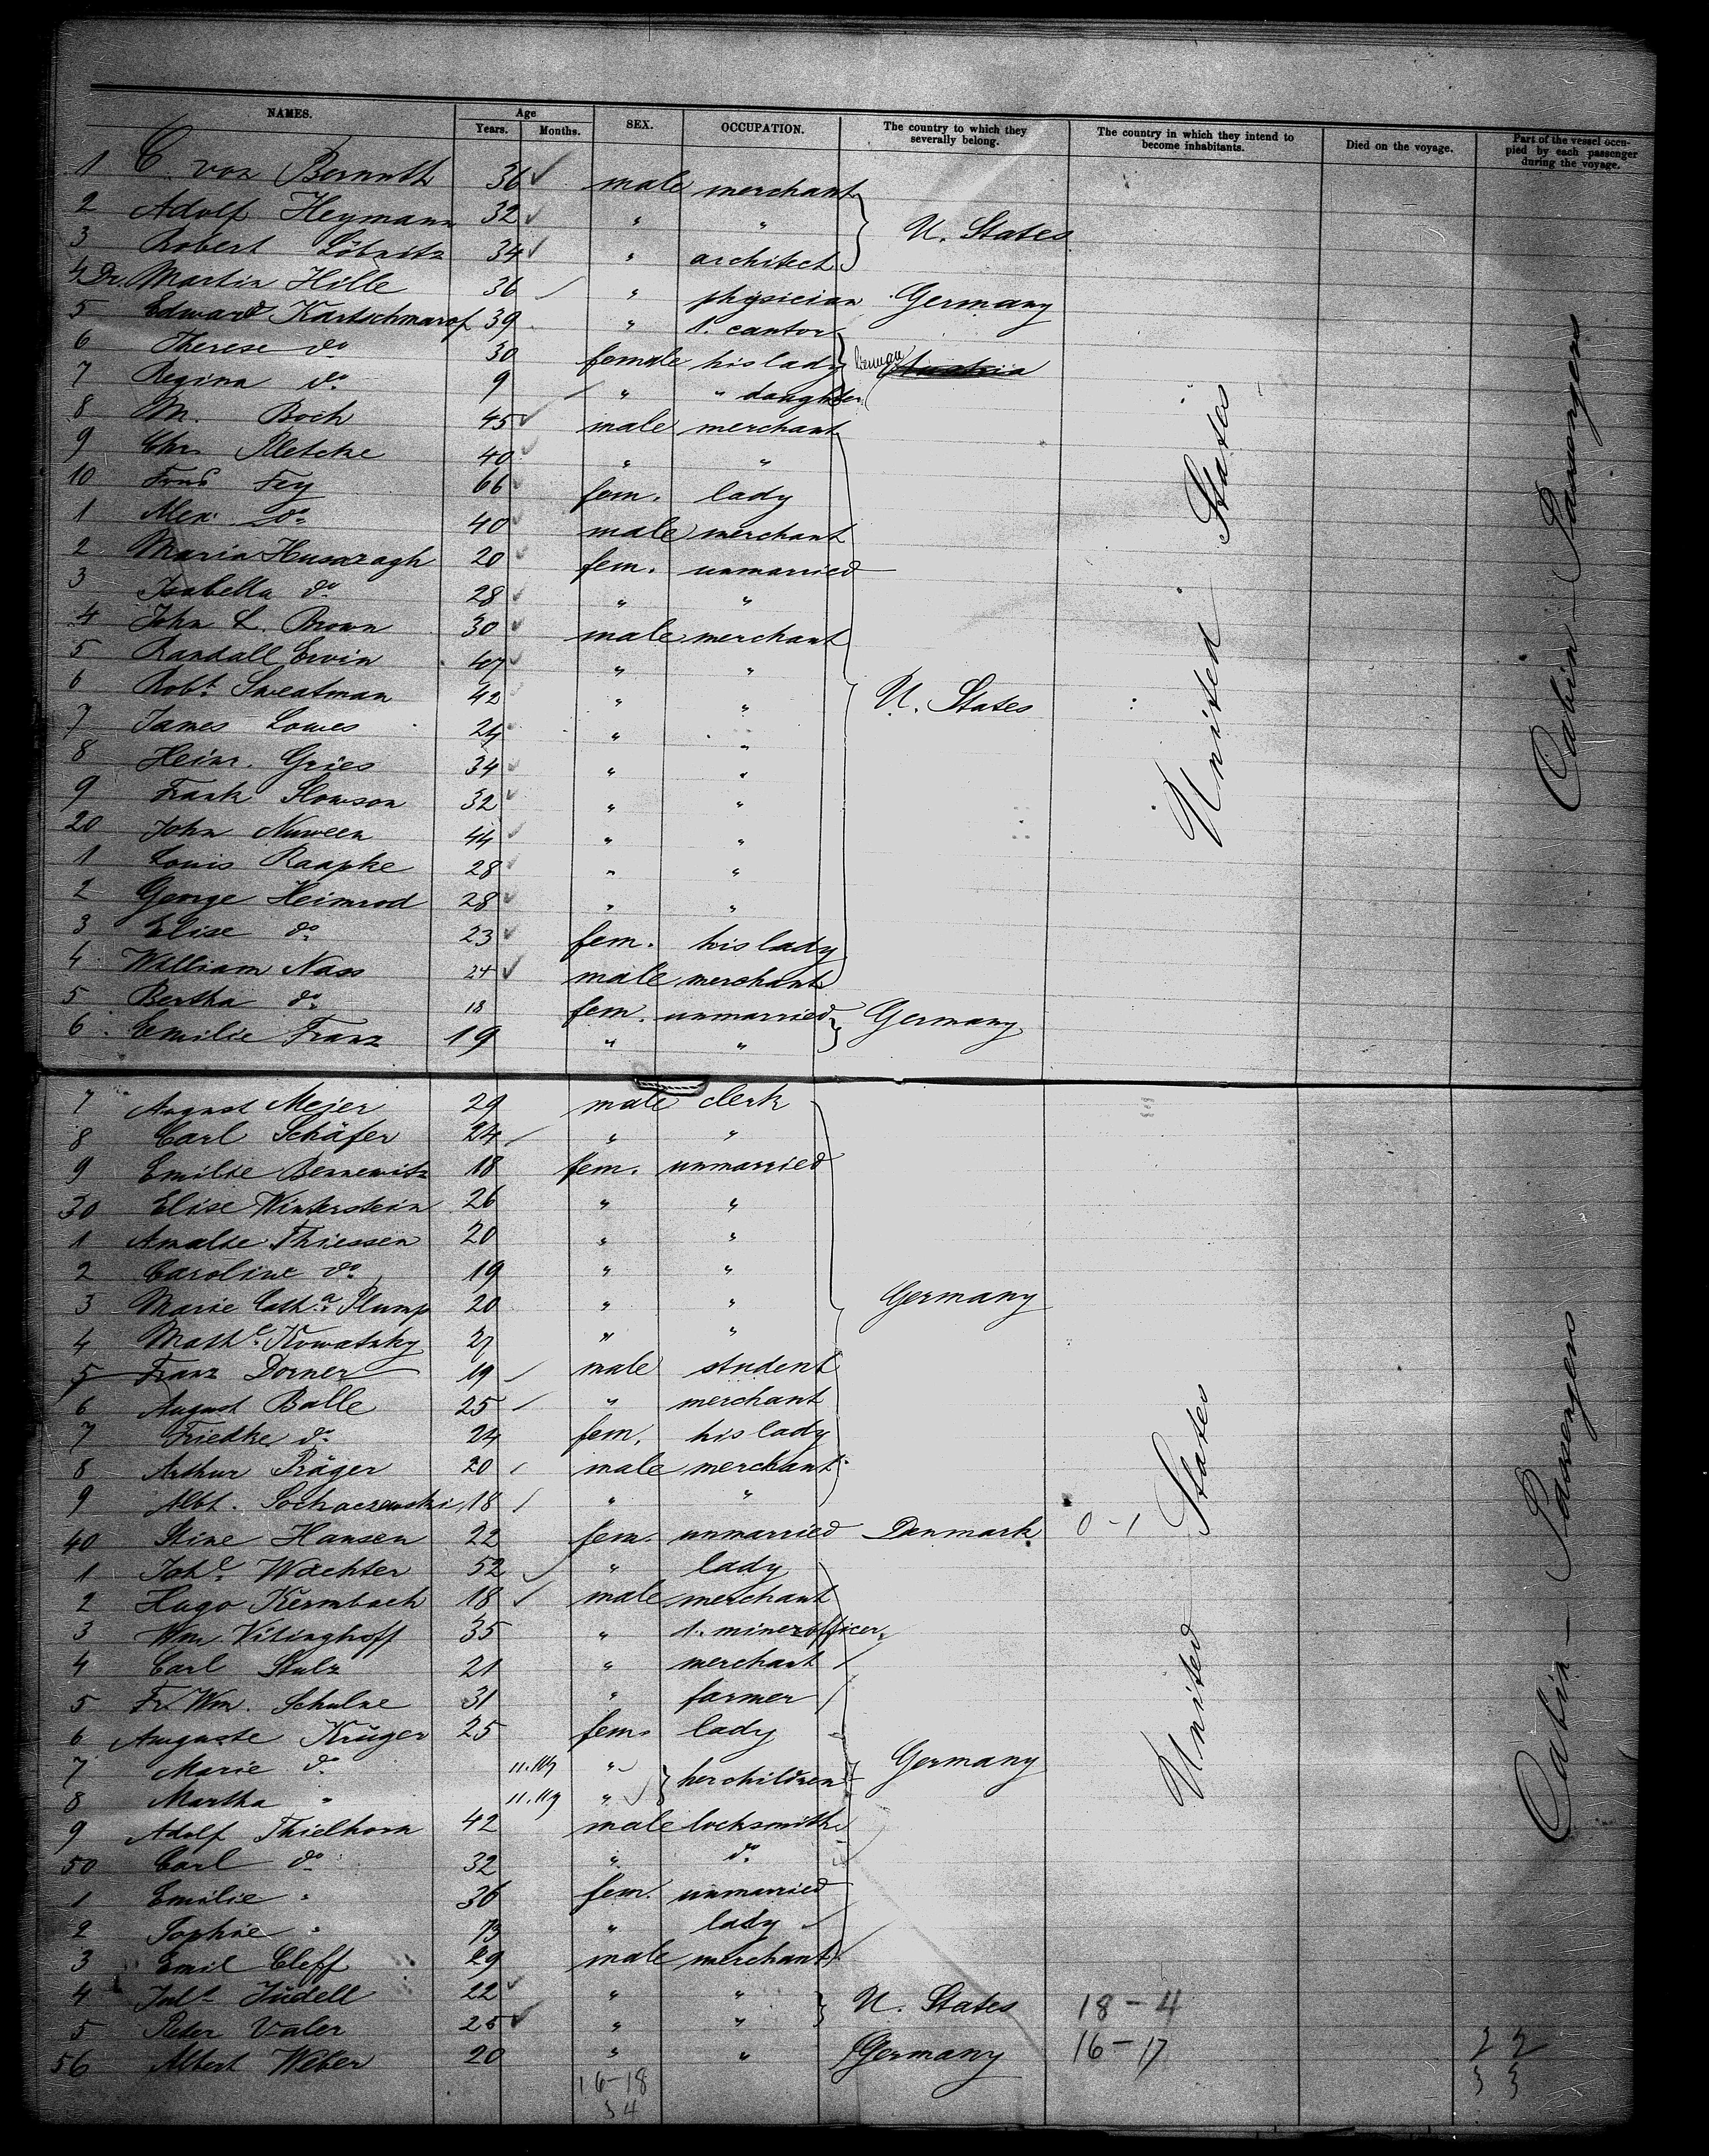 NAMES. Age SEX. OCCUPATION. The country to which they severally belong. The country in which they intend to become inhabitants. Died on the voyage. Part of the vessel occupied by each passenger during the voyage.
Years. Months.
1 C. von Bernuth 36 male merchant
2 Adolf Heymann 32 " "
3 Robert Löbnitz 34 " architect U. States
4 Dr. Martin Hille 36 " physician Germany
5 Edward Kartschmarof 39 " 1. cantor
6 Therese do 30 female his lady Austria
7 Regina do 9 " " daughter
8 M. Boch 45 male merchant
9 Chr. Pletcke 40 " "
10 Fey 66 fem. lady
1 Alex. do 40 male merchant
2 Maria 20 fem. unmarried
3 Isabella do 28 " "
4 John L. Brown 30 male merchant
5 Randall Erwin 47 " "
6 Robt. Sweatman 42 " " U. States
7 James Lowes 24 " "
8 Heinr. Gries 34 " "
9 Frank Slowson 32 " "
20 John Nuween 44 " "
1 Louis Raapke 28 " "
2 George Heimrod 28 " "
3 Elise do 23 fem. his lady
4 William Nass 24 male merchant
5 Bertha do 18 fem. unmarried Germany
6 Emilie Franz 19 " "
United States
Cabin Passengers
7 August Meier 29 male clerk
8 Carl Schäfer 24 " "
9 Emilie Bennewitz 18 fem. unmarried
30 Elise Winterstein 26 " "
1 Amalie Thiessen 20 " "
2 Caroline do 19 " "
3 Marie Cath.a Plump 20 " " Germany
4 Math.e Kowatzky 27 " "
5 Franz Dorner 19 male student
6 August Balle 25 " merchant
7 Friedke do 24 fem. his lady
8 Arthur Präger 20 male merchant
9 Albt. Sochaczewski 18 " "
40 Stine Hansen 22 fem. unmarried Denmark 0-1
1 Joh.e Wachter 52 " lady
2 Hugo Kermbach 18 male merchant
3 Wm. Vitinghoff 35 " 1. minerofficer
4 Carl Stulz 21 " merchant
5 Fr. Wm. Schulze 31 " farmer
6 Auguste Krüger 25 fem. lady
7 Marie do " her children Germany
8 Martha " "
9 Adolf Thielhorn 42 male locksmith
50 Carl do 32 " do
1 Emilie " 36 fem. unmarried
2 Sophie " 73 " lady
3 Emil Cleff 29 male merchant
4 Jul.s Jüdell 22 " " U. States 18-4
5 Peter Valer 25 " "
56 Albert Weber 20 " " Germany 16-17
16-18
34
United States
Cabin - Passengers